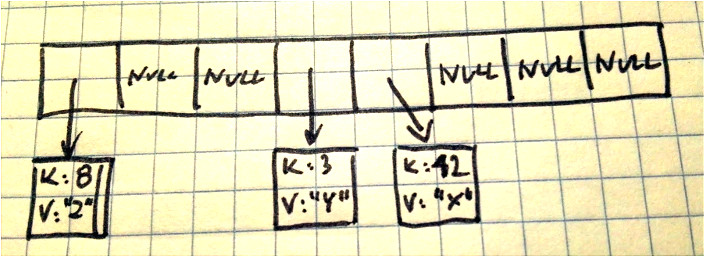 NULL NULL NULL NULL NULL
K:8
V:"Z"
K:3
V:"Y"
K:42
V:"X"